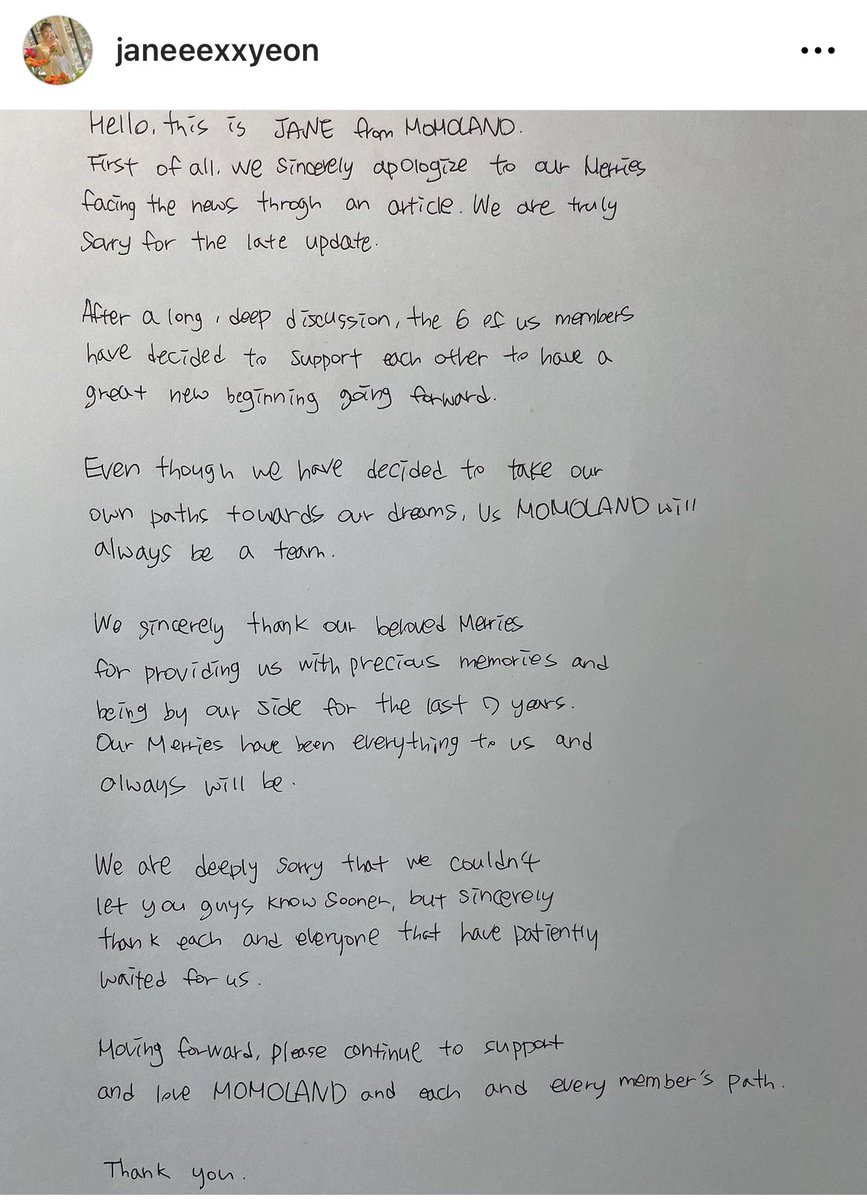 janeeexxyeon
Hello, this is JANE from MOMOLAND.
First of all, we sincerely apologize to our Merries
facing the news throgh an article. We are truly
sorry for the late update.
After a long, deep discussion, the 6 of us members
have decided to support each other to have a
great new beginning going forward.
Even though we have decided to take our
own paths towards our dreams, us MOMOLAND will
always be a team.
We sincerely thank our beloved Merries
for providing us with precious memories and
being by our side for the last 7 years.
Our Merries have been everything to us and
always will be.
We are deeply sorry that we couldn't
let you guys know sooner, but sincerely
thank each and everyone that have patiently
waited for us.
Moving forward, please continue to support
and love MOMOLAND and each and every member's path.
Thank you.